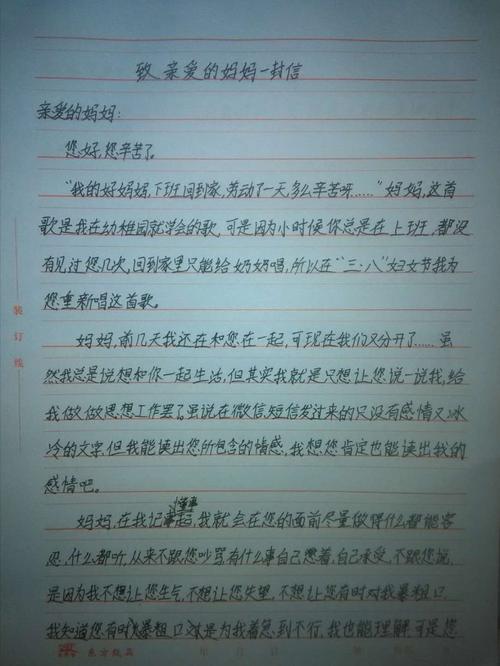 致亲爱的妈妈一封信
亲爱的妈妈:
您好,您辛苦了。
"我的好妈妈,下班回到家,劳动了一天,多么辛苦呀……"妈妈,这首
歌是我在幼稚园就学会的歌,可是因为小时候你总是在上班,都没
有见过您几次,回到家里只能给奶奶唱,所以在"三·八"妇女节我为
您重新唱这首歌。
妈妈,前几天我还在和您在一起,可现在我们又分开了……虽
然我总是说想和你一起生活,但其实我就是只想让您说一说我,给
我做做思想工作罢了。虽说在微信短信发过来的只没有感情又冰
冷的文字,但我能读出您所包含的情感,我想您肯定也能读出我的
感情吧。
妈妈,在我记事起,懂事我就会在您的面前尽量做得什么都能容
忍,什么都听,从来不跟您吵骂,有什么事自己憋着,自己承受,不跟您说,
是因为我不想让您生气,不想让您失望,不想让您有时对我暴粗口
我知道您有时暴粗口这是为我着急到不行,我也能理解,可是您
装订线
东方纸品
年 月 日